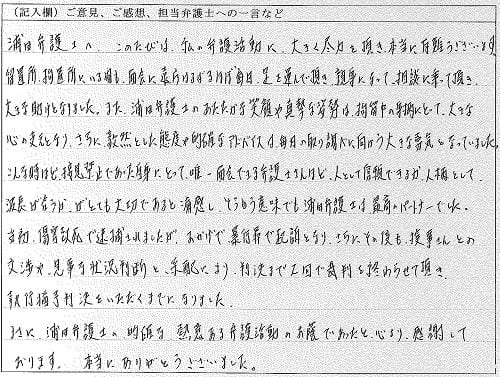 （記入欄）ご意見、ご感想、担当弁護士への一言など
浦田弁護士へ、このたびは、私の弁護活動に、大きく尽力を頂き、本当に有難うございます
留置所、拘置所にいる時も、面会に 毎日、足を運んで頂き、親身になって、相談に乗って頂き、
大きな助けとなりました。また、浦田弁護士のあたたかな笑顔や真摯な姿勢は、拘留中の身柄にとって、大きな
心の支えとなり、さらに、毅然とした態度や的確なアドバイスは、毎日の取り調べに向かう大きな勇気となっていました。
こんな時ほど、接見禁止であった自身にとって、唯一面会できる弁護士さんほど、人として信頼できるか、人柄として
波長が合うか、がとても大切であると痛感し、そういう意味でも浦田弁護士は最高のパートナーでした。
当初、傷害致死で逮捕されましたが、おかげで暴行罪で起訴となり、さらにその後も、検事さんとの
交渉や、見事な状況判断と、采配により、判決まで2回で裁判を終わらせて頂き、
執行猶予判決をいただくまでになりました。
まさに、浦田弁護士の、的確な、熱意ある弁護活動のお蔭であったと、心より、感謝して
おります。 本当にありがとうございました。